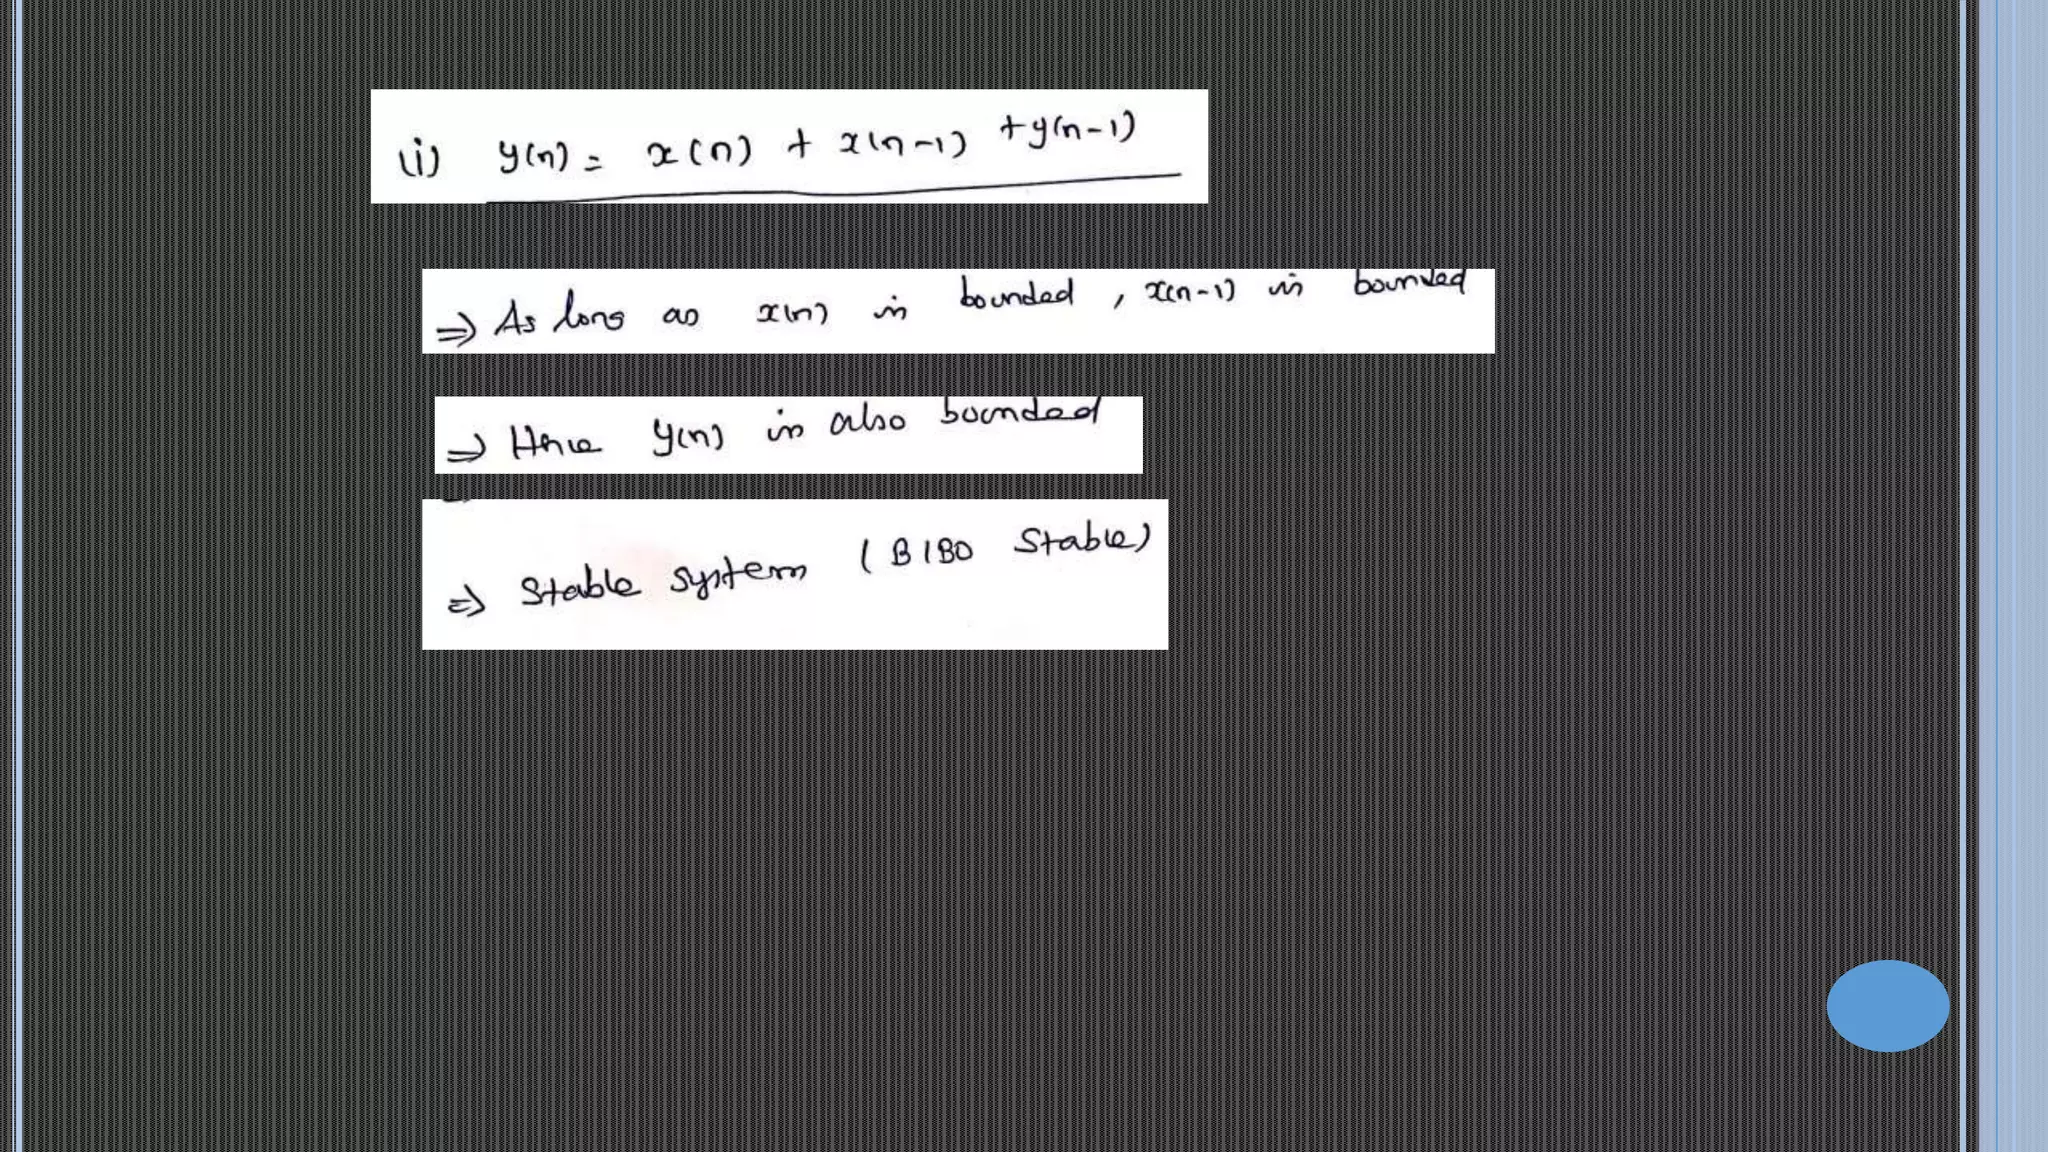 (i) y(n) = x(n) + x(n-1) + y(n-1)
⇒ As long as x(n) is bounded, x(n-1) is bounded
⇒ Hence y(n) is also bounded
⇒ Stable system (BIBO Stable)